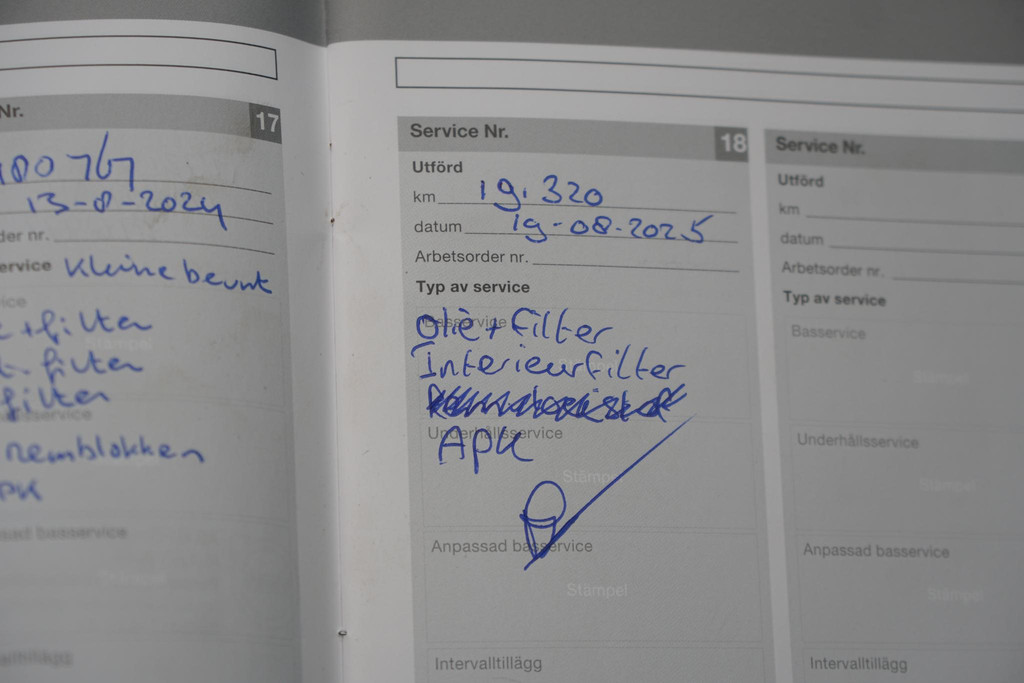 Nr. 17
180767
13-8-2024
der nr.
ervice Kleine beurt
ice
e+filter
t. filter
filter
service
remblokken
PK
sad basservice
Service Nr. 18
Utförd
km 19.320
datum 19-08-2025
Arbetsorder nr.
Typ av service
Basservice
Olie+filter
Interieurfilter
Underhållsservice
APK
Stämpel
Anpassad basservice
Stämpel
Intervalltillägg
Service Nr.
Utförd
km
datum
Arbetsorder nr.
Typ av service
Basservice
Stämpel
Underhållsservice
Stämpel
Anpassad basservice
Stämpel
Intervalltillägg